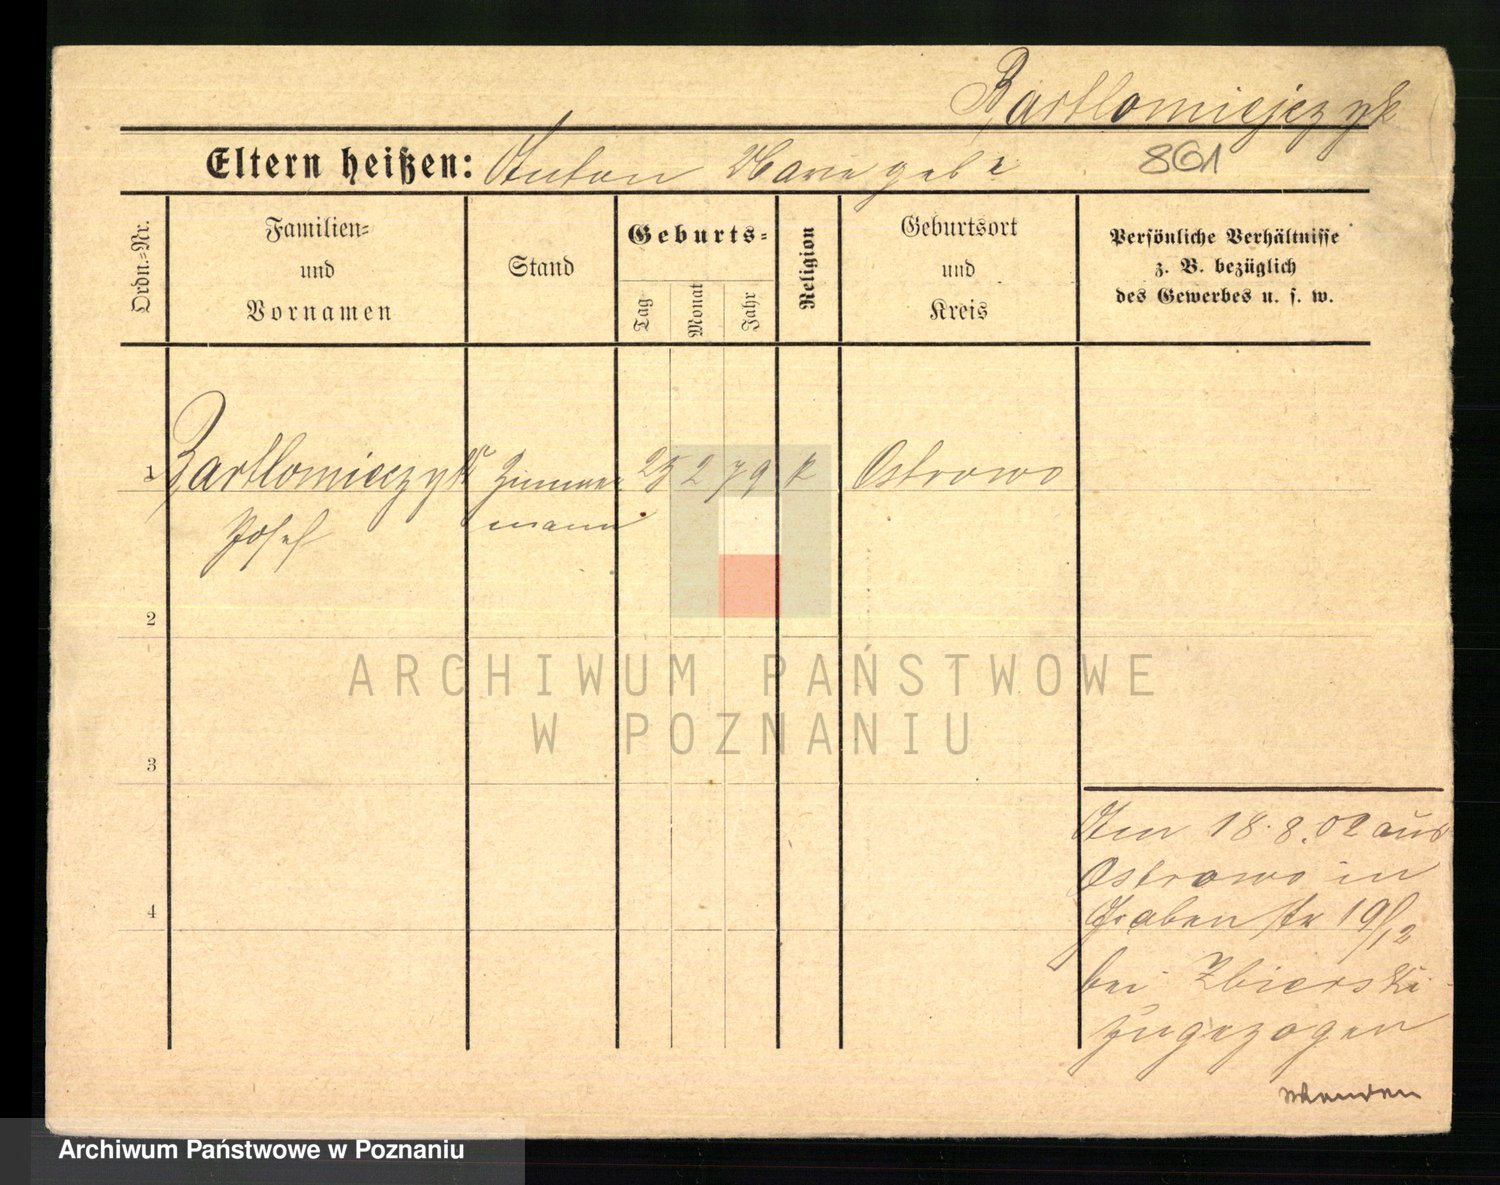 Bartlomiejczyk
Eltern heißen: Anton Marie geb ?
861
Ordn.=Nr.
Familien=
und
Vornamen
Stand
Geburts=
Tag
Monat
Jahr
Religion
Geburtsort
und
Kreis
Persönliche Verhältnisse
z. B. bezüglich
des Gewerbes u. s. w.
1 Bartlomieczyk Zimmer 25 2 79 k Ostrowo
Josef mann
2
3
4
Am 18.8.02 aus
Ostrowo in
Graben str 19/12
bei Zbierski
zugezogen
Wenden
ARCHIWUM PAŃSTWOWE
W POZNANIU
Archiwum Państwowe w Poznaniu